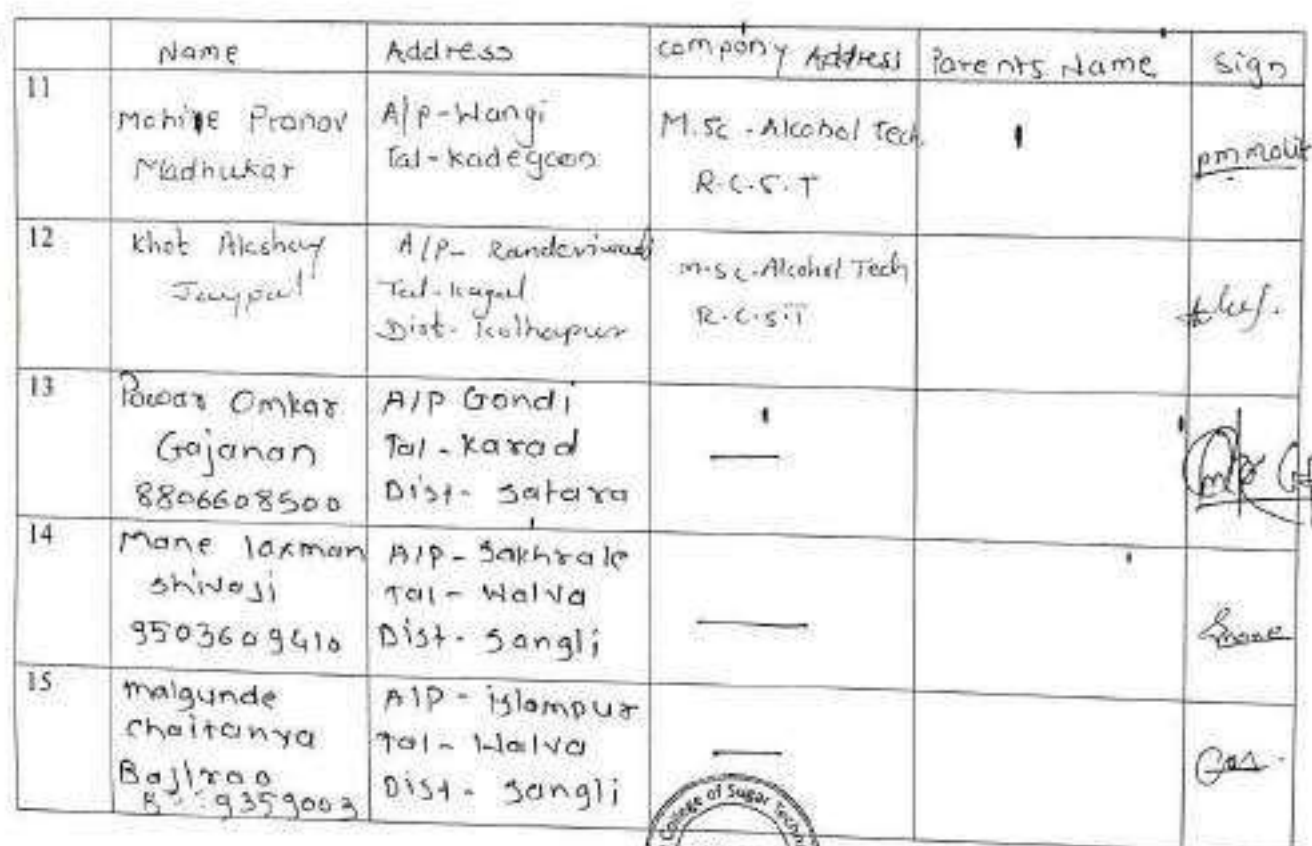 Name Address company Address Parents Name Sign
11
Mohite Pranav Madhukar
A/P-Wangi
Tal-Kadegaon
M.Sc - Alcohol Tech.
R.C.S.T
12
Khot Akshay
Jaypal
A/P-
Tal-Kagal
Dist- Kolhapur
M.Sc. Alcohol Tech
R.C.S.T
13
Pawar Omkar
Gajanan
8806608500
A/P Gondi
Tal - Karad
Dist- Satara
14
Mane laxman
shivaji
9503609410
A/P - Sakhrale
Tal - Walva
Dist - Sangli
15
Malgunde
Chaitanya
Bajirao
9359003
A/P - islampur
Tal - Walva
Dist - Sangli
College of Sugar